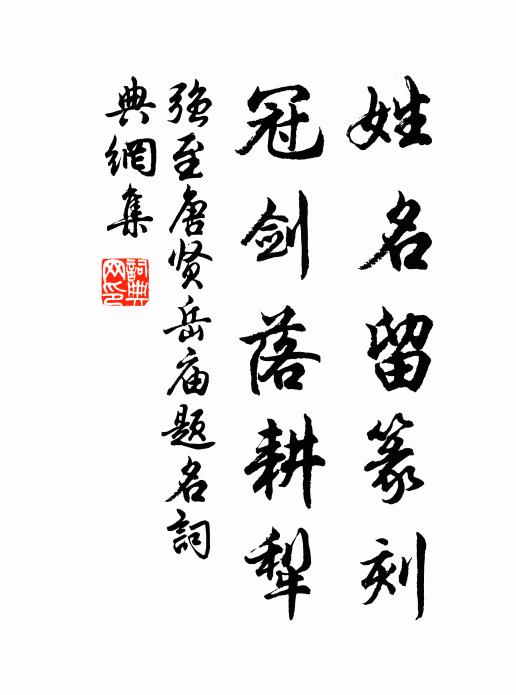 姓名留篆刻
冠剑落耕犁
强至唐贤岳庙题名詞
典網集
詞典
网印